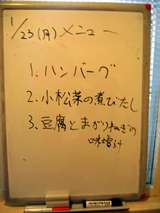 1/23(月)メニュー
1. ハンバーグ
2. 小松菜の煮びたし
3. 豆腐とまがりねぎの
味噌汁